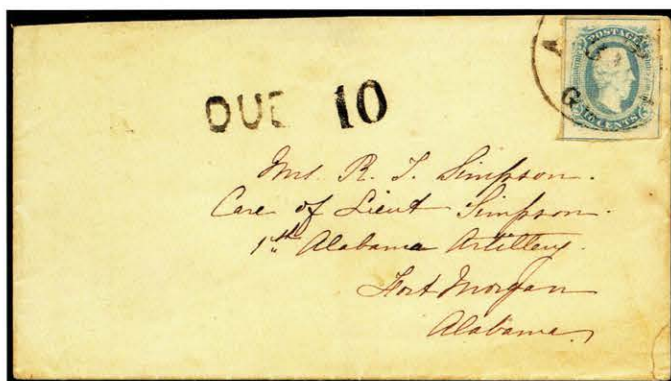 POSTAGE
10 CENTS
DUE 10
Mrs. R. T. Simpson.
Care of Lieut Simpson.
1st Alabama Artillery.
Fort Morgan
Alabama.